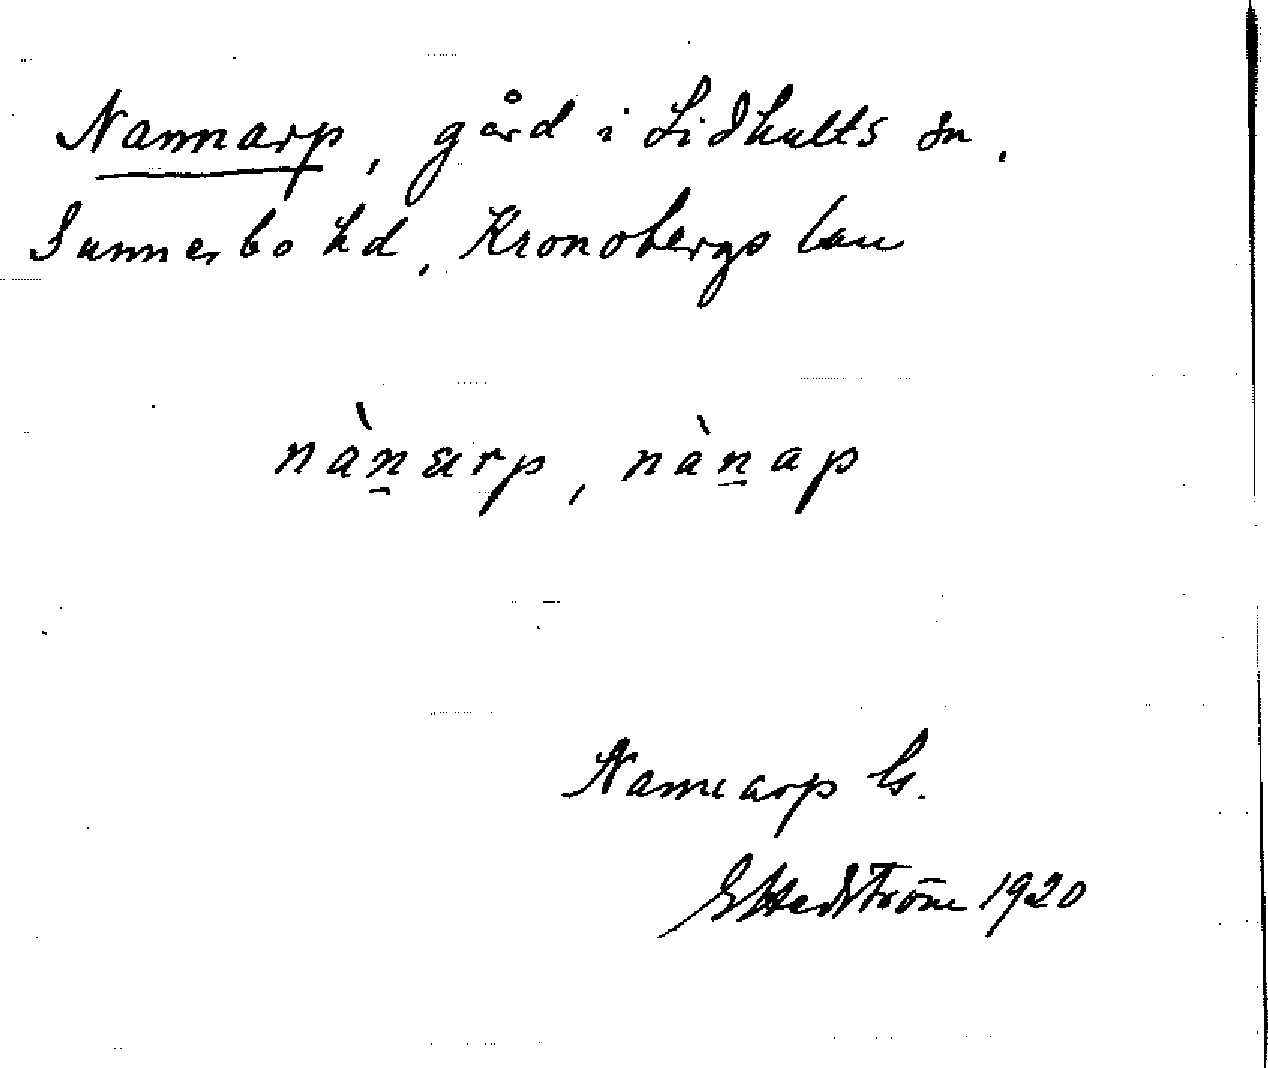 Nannarp, gård i Lidhults sn,
Sunnerbo hd, Kronobergs län
nàn̲ærp, nàn̲ap
Nannarp G.
G Hedström 1920